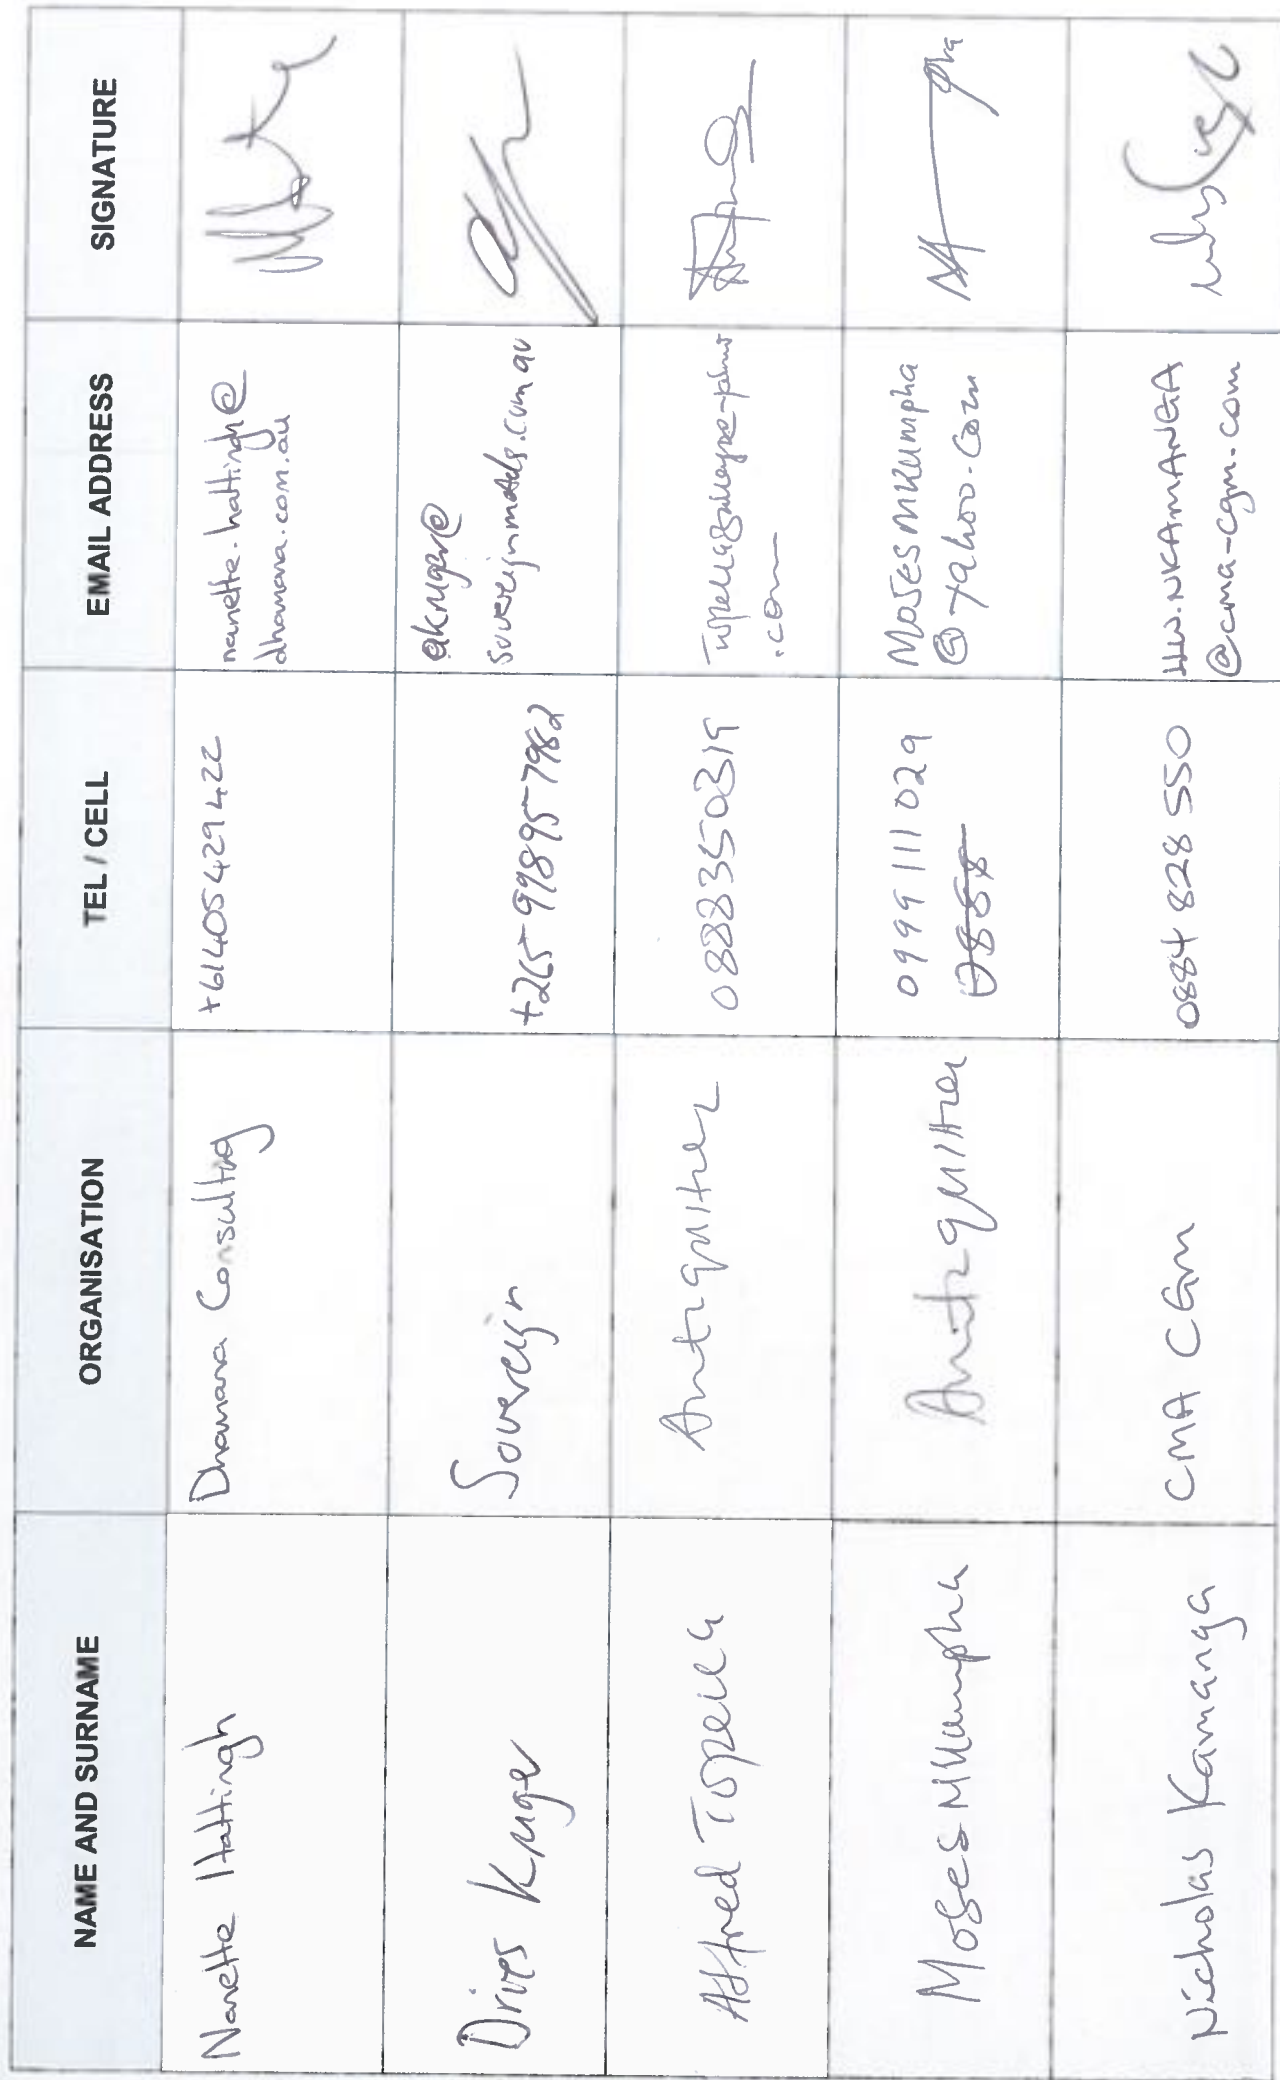 NAME AND SURNAME
ORGANISATION
TEL / CELL
EMAIL ADDRESS
SIGNATURE
Nanette Hattingh
Dhamana Consulting
+61405429422
nanette.hattingh@
dhamana.com.au
Dries Kruger
Sovereign
+265 998957982
akruger@
sovereignmetals.com.au
Alfred Topeka
Antiquities
0888350319
.com
Moses Mkumpha
Antiquities
0999111029
0888
Mosesmkumpha
@yahoo.com
Nicholas Kamanga
CMA CGm
0884 828 550
LLW.NKAMANGA
@cma-cgm.com